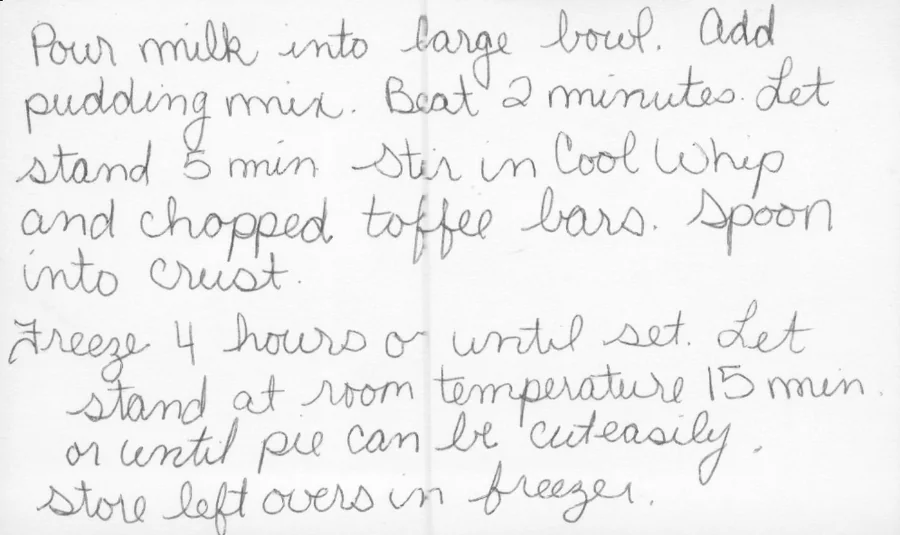 Pour milk into large bowl. Add
pudding mix. Beat 2 minutes. Let
stand 5 min stir in Cool Whip
and chopped toffee bars. Spoon
into crust.
Freeze 4 hours or until set. Let
stand at room temperature 15 min.
or until pie can be cut easily.
store left overs in freezer.